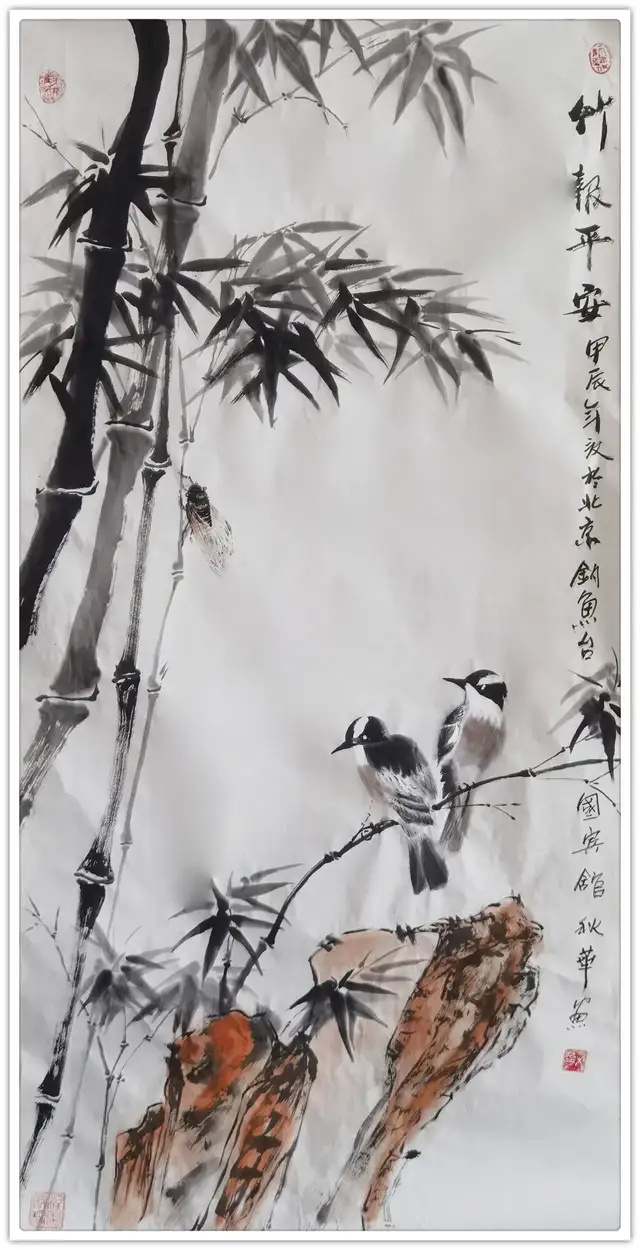 竹報平安 甲辰年 於北京釣魚台
國宾館 秋華